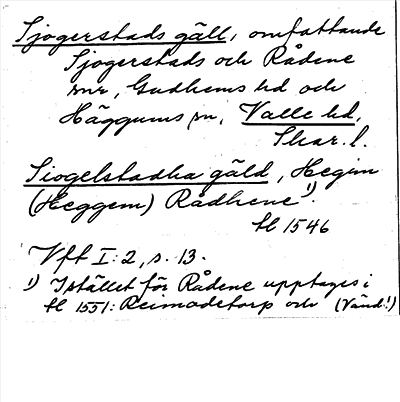 Sjogerstads gäll, omfattande
Sjogerstads och Rådene
snr, Gudhems hd och
Häggums sn, Valle hd,
Skar. l.
Siogelstadha gäld, Hegim
(Heggem) Rådhene 1).
hl 1546
Vft I: 2, s. 13.
1) Istället för Rådene upptages i
hl 1551: Reimodetorp och (Vänd!)